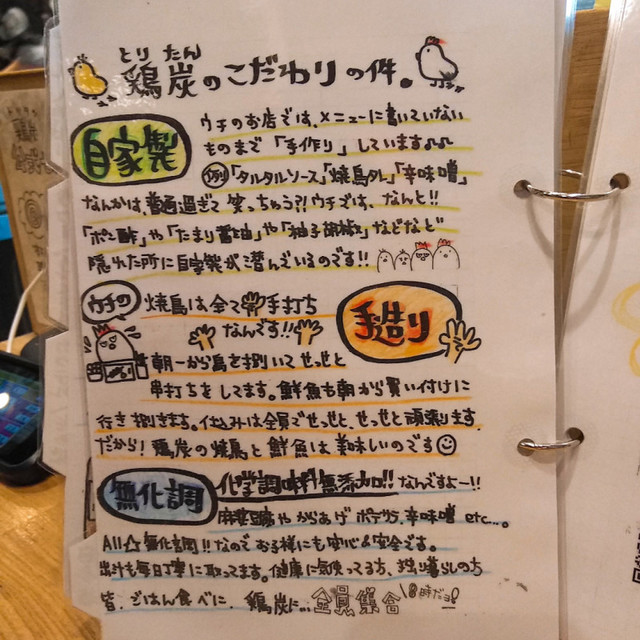 とり たん
鶏炭のこだわりの件。
自家製
ウチのお店では、メニューに書いていない
ものまで「手作り」しています♪♪
例「タルタルソース」「焼鳥タレ」「辛味噌」
なんかは、普通過ぎて笑っちゃう?!ウチでは、なんと!!
「ポン酢」や「たまり醤油」や「柚子胡椒」などなど
隠れた所に自家製が潜んでいるのです!!
ウチの
焼鳥は全て手打ち
なんです!!
手造り
朝一から鳥を捌いてせっせと
串打ちをしてます。鮮魚も朝から買い付けに
行き捌きます。仕込みは全員でせっせと、せっせと頑張ります。
だから!鶏炭の焼鳥と鮮魚は美味しいのです
無化調
化学調味料無添加!!なんですよー!!
麻婆豆腐やからあげ ポテサラ、辛味噌 etc...。
All☆無化調!!なのでお子様にも安心&安全です。
出汁も毎日丁寧に取ってます。健康に気使ってる方、独り暮らしの方
皆、ごはん食べに、鶏炭に...全員集合 8時だョ!